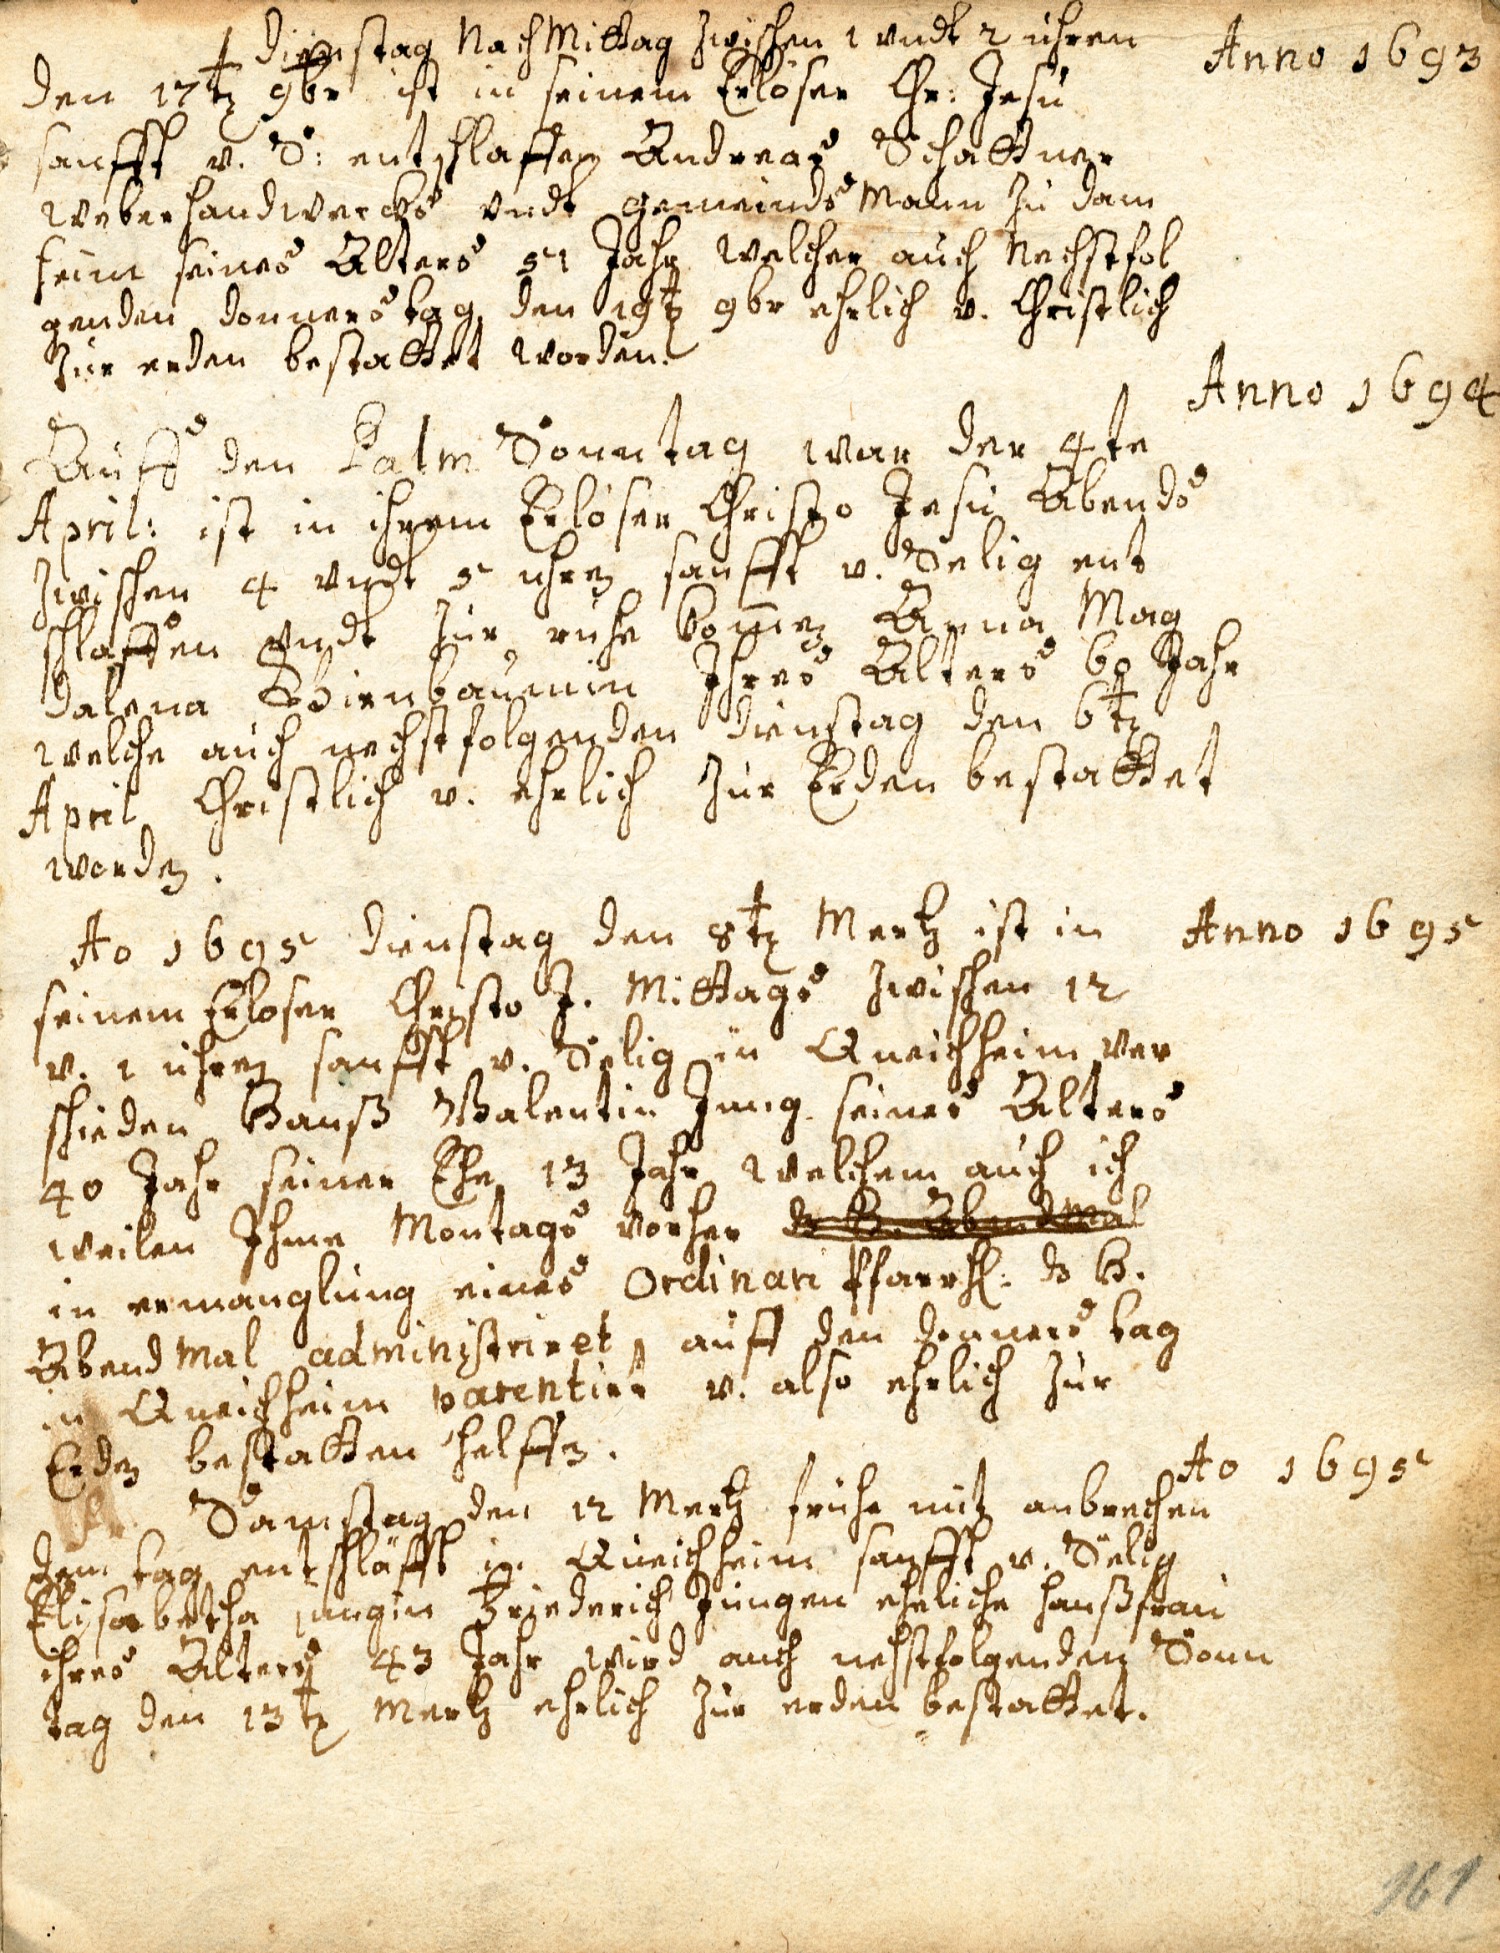 Dienstag NachMittag zwischen 1 vndt 2 uhren
Anno 1693
den 17t 9br ist in seinem Erlöser Chr: Jesu
sanfft v. S: entschlaffen Andreas Schattner
weberhandwercks vndt gemeindsMann zu Dam
heim seines Alters 51 Jahr welcher auch Nechstfol
genden donnerstag den 19t 9br ehrlich v. Christlich
zur erden bestattet worden.
Anno 1694
Auff den Palm Sonntag war der 4te
April: ist in ihrem Erlöser Christo Jesu Abends
zwischen 4 vndt 5 uhren sanfft v. Selig ent
schlaffen vndt zur ruhe kom̅en Anna Mag
dalena Ihres Alters 60 Jahr
welche auch nechstfolgenden dienstag den 6t
April Christlich v. ehrlich zur Erden bestattet
worden.
Ao 1695 dienstag den 8t Mertz ist in
Anno 1695
seinem Erloser Christo J. Mittags zwischen 12
v. 1 uhren sanfft v. Selig in Queichheim ver
schieden Hanß Valentin Jung seines Alters
40 Jahr seiner Ehe 13 Jahr welchem auch ich
weilen Ihme Montags vorher ds H. Abendmal
in ermanglung eines Ordinari Pfarrh: ds H.
AbendMal administriret, auff den donnerstag
in Queichheim parentirt v. also ehrlich zur
Erden bestatten helffen.
Ao 1695
Samstag den 12 Mertz frühe mit anbrechen
dem tag entschläfft in Queichheim sanfft v. Selig
Elisabetha jungin Friederich Jungen eheliche haußfrau
ihres Alters 43 Jahr wird auch nechstfolgenden Sonn
tag den 13t Mertz ehrlich zur erden bestattet.
161